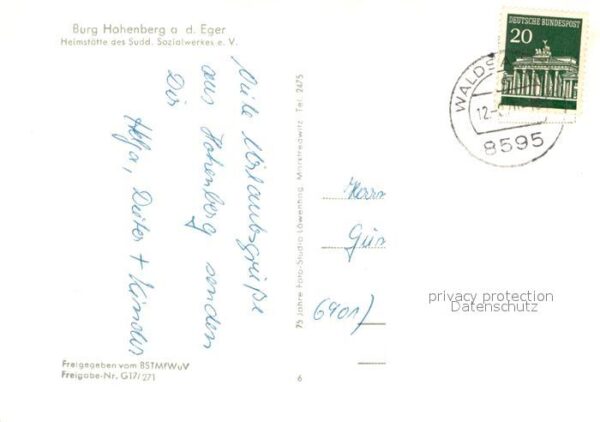 Burg Hohenberg a. d. Eger
Heimstätte des Sudd. Sozialwerkes e. V.
Viele Urlaubsgrüße
aus Hohenberg senden
Dir
Helga, Dieter + Kinder
Freigegeben vom BSTMfWuV
Freigabe-Nr. G17/271
75 Jahre Foto-Studio Löwenhag, Marktredwitz, Tel. 2475
6
DEUTSCHE BUNDESPOST
20
WALDSA
12.-
8595
Herrn
Gün
6901)
privacy protection
Datenschutz